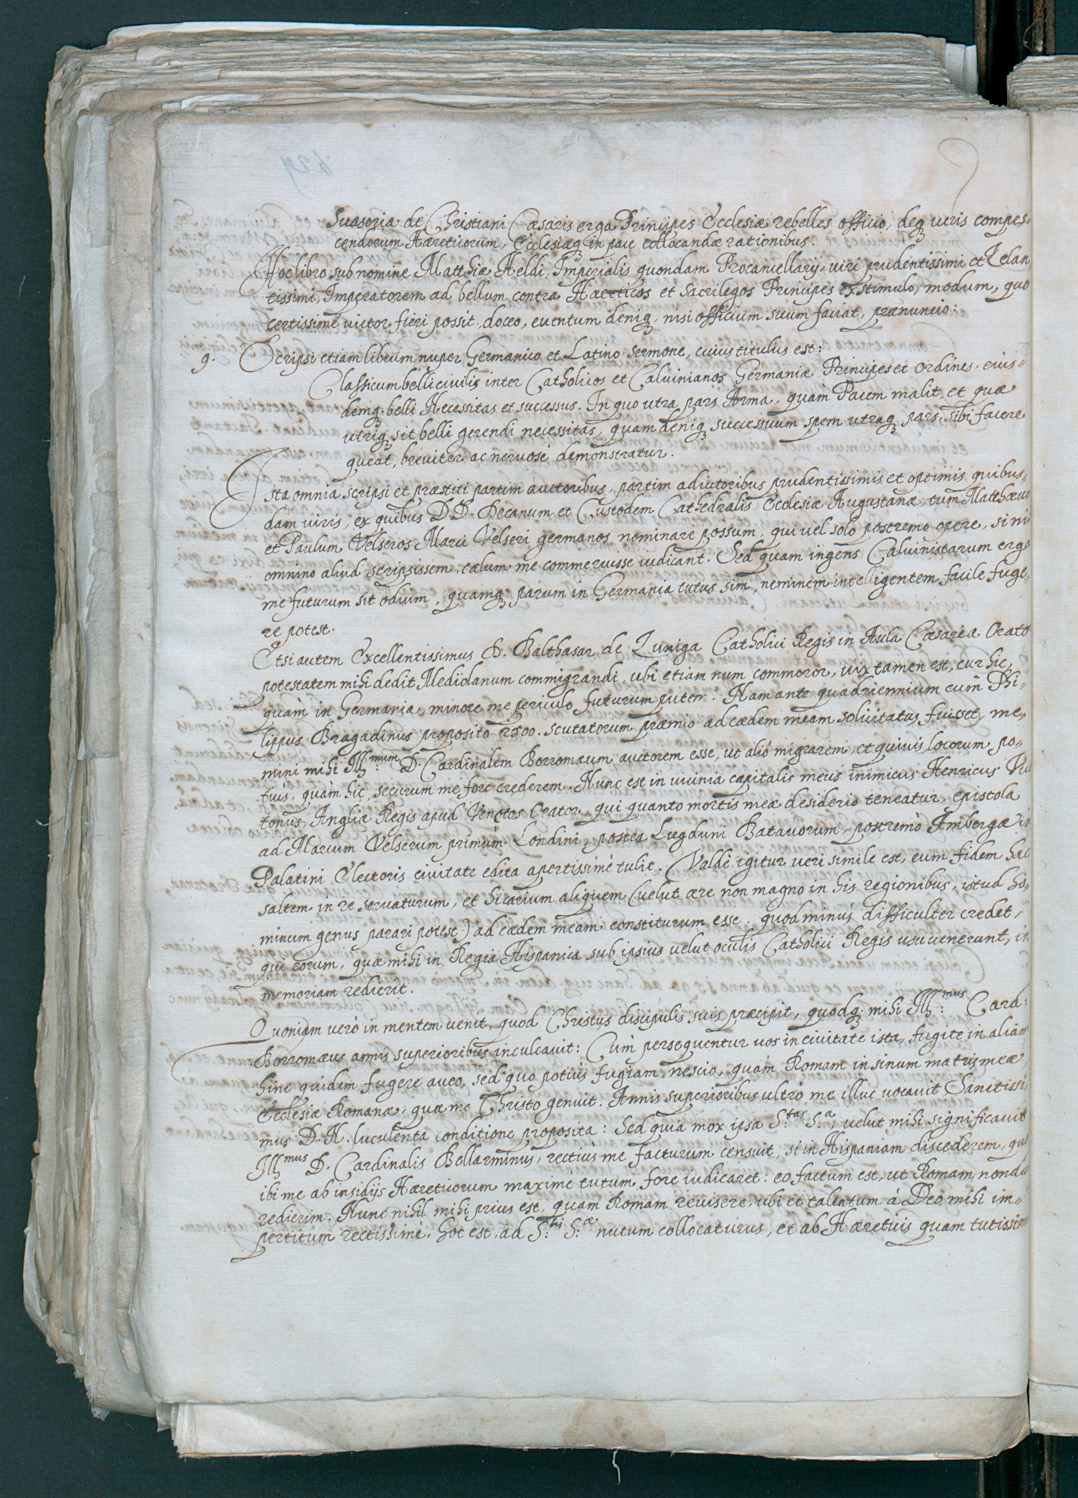 Suasoria de Christiani Cæsaris erga Principes Ecclesiæ rebelles officio, deq; veris compes
cendorum Hæreticorum, Ecclesiæq; in pace collocandæ rationibus.
Hoc libro sub nomine Matthiæ Heldi, Imperialis quondam Procancellarij, viri prudentissimi et Zelan
tissimi, Imperatorem ad bellum contra Hæreticos et Sacrilegos Principes exstimulo, modum, quo
certissimè victor fieri possit, doceo, eventum deniq; nisi officium suum faciat, prænuncio.
9. Scripsi etiam librum nuper Germanico et Latino sermone, cuius titulus est:
Classicum belli civilis inter Catholicos et Calvinianos Germaniæ Principes et Ordines, eius=
demq; belli Necessitas et successus. In quo utra pars Arma, quàm Pacem malit, et quæ
utriq; sit belli gerendi necessitas, quam deniq; successuum spem utraq; pars sibi facere
queat, breviter ac nervose demonstratur.
Ista omnia scripsi et præstiti partim auctoribus, partim adiutoribus prudentissimis et optimis quibus=
dam viris, ex quibus D.D. Decanum et Custodem Cathedralis Ecclesiæ Augustanæ, tùm Matthæum
et Paulum Velseros Marci Velseri germanos nominare possum, qui vel solo postremo opere, si ni
omnino aliud scripsissem, cælum me commeruisse iudicant. Sed quam ingens Calvinistarum erga
me futurum sit odium, quamq; parum in Germania tutus sim, neminem intelligentem facile fuge,
re potest.
Etsi autem Excellentissimus D. Balthasar de Zuniga Catholici Regis in Aula Cæsarea Orato
potestatem mihi dedit Mediolanum commigrandi, ubi etiam num commoror, vix tamen est, cur hic,
quàm in Germania, minore me periculo futurum putem. Nam ante quadriennium cùm Phi=
lippus Bragadinus proposito 2500. scutatorum præmio ad cædem meam solicitatus fuisset, me=
mini mihi Illmum D. Cardinalem Borromæum auctorem esse, ut aliò migrarem, et quivis locorum po=
tius, quam hic, securum me fore crederem. Nunc est in vicinia capitalis meus inimicus Henricus Vu
tonus, Angliæ Regis apud Venetos Orator, qui quanto mortis meæ desiderio teneatur, epistola
ad Marcum Velserum primum Londini, postea Lugduni Batavorum, postremò Ambergæ in
Palatini Electoris civitate edita apertissimè tulit. Valdè igitur veri simile est, eum fidem hac
saltem in re servaturum, et sicarium aliquem (velut ære non magno in his regionibus, istud ho,
minum genus parari potest) ad cædem meam constiturum esse: quod minus difficulter credet,
qui eorum, quæ mihi in Regia Hispanica sub ipsius velut oculis Catholici Regis usu venerunt, in
memoriam redierit.
Quoniam verò in mentem venit, quod Christus discipulis suis præcipit, quodq; mihi Illmus: Card:
Borromæus annis superioribus inculcavit: Cùm persequentur vos in civitate ista, fugite in aliam
hinc quidem fugere aveo, sed quo potius fugiam, nescio, quam Romam in sinum matris meæ
Ecclesiæ Romanæ, quæ me Christo genuit. Annis superioribus ultrò me illuc vocavit Sanctissi
mus D. N. luculenta conditione proposita: Sed quia mox ipsa S.tas S.a, velut mihi significavit
Illmus D. Cardinalis Bellarminus, rectius me facturum censuit, si in Hispaniam discederem, quod
ibi me ab insidijs Hæreticorum maximè tutum fore iudicaret: eo factum est, ut Romam nondu
redierim. Nunc nihil mihi prius est, quam Romam revisere, ubi et talentum à Deo mihi im=
pertitum rectissimè, hoc est, ad S.tis S.æ nutum collocaturus, et ab Hæreticis quam tutissim